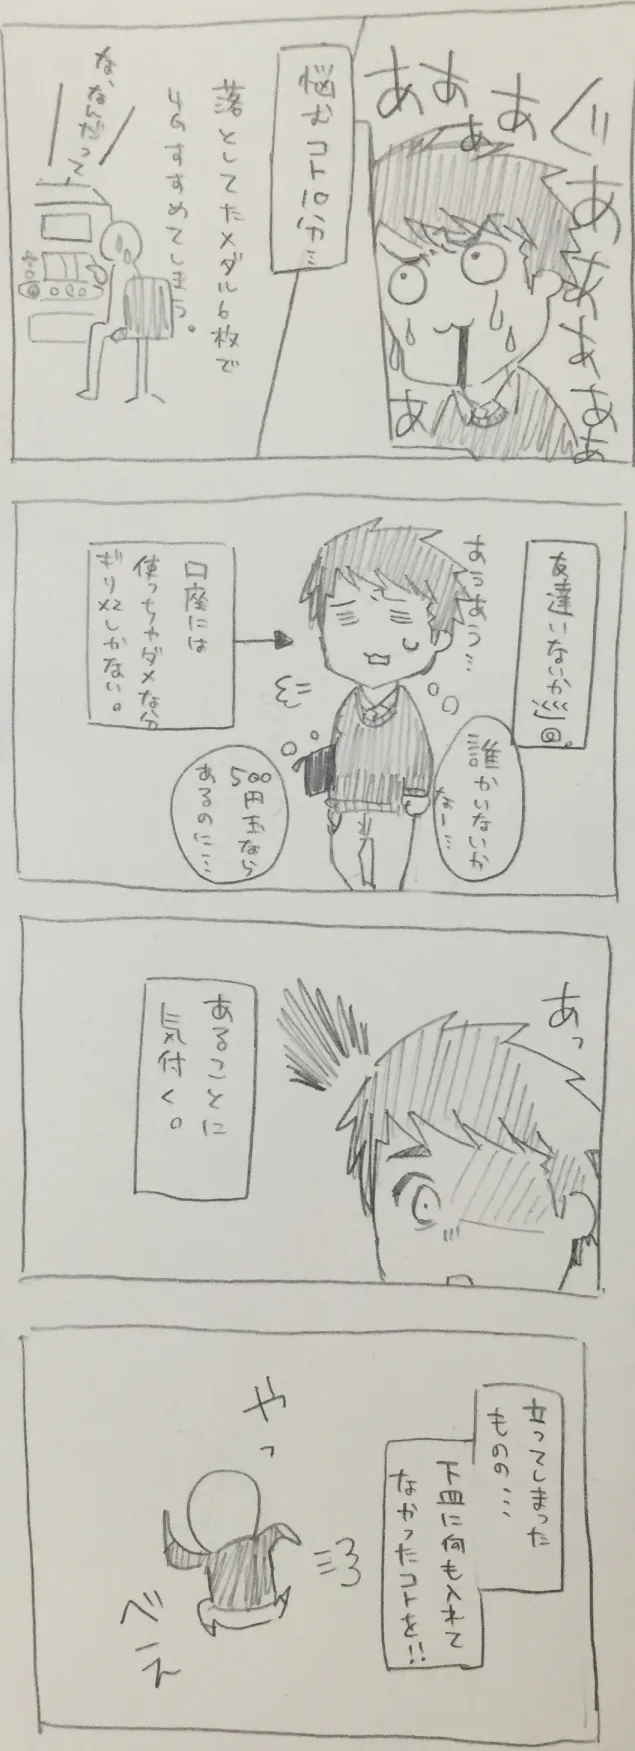 ぐぁあああ
ああああああ
悩むコト10分…
落としてたメダル6枚で
4Gすすめてしまう。
な、なんだって
友達いないか巡回。
あうあう…
誰かいないか
なー…
口座には
使っちゃダメな分
ギリ〆2しかない。
500
円玉なら
あるのに…
あっ
あることに
気付く。
立ってしまった
ものの…
下皿に何も入れて
なかったコトを!!
やっ
べー
え